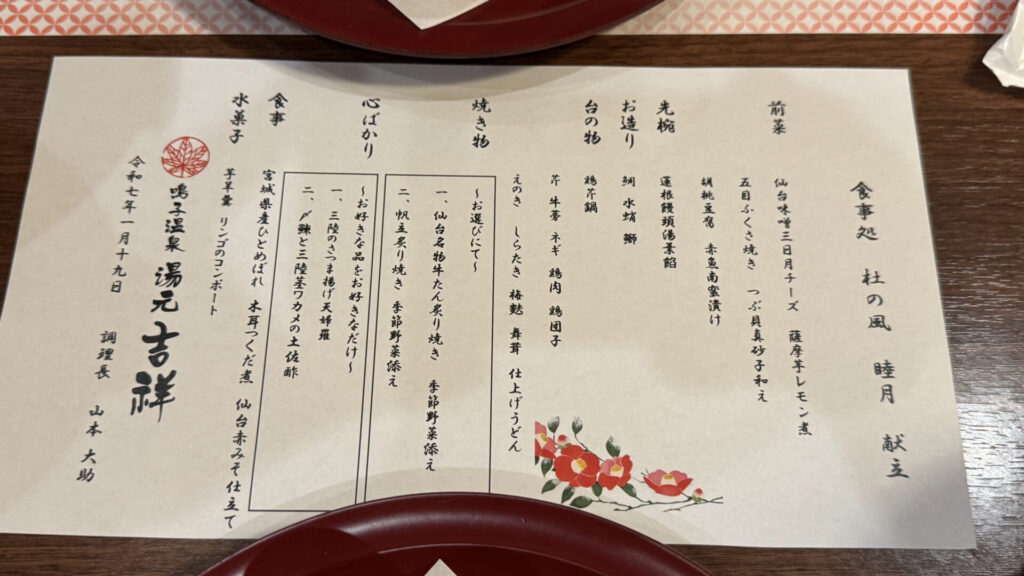 食事処　杜の風　睦月　献立
前菜
仙台味噌三日月チーズ　薩摩芋レモン煮
五目ふくさ焼き　つぶ貝真砂子和え
胡桃豆腐　赤魚南蛮漬け
先椀
蓮根饅頭湯葉餡
お造り
鯛　水蛸　鰤
台の物
鶏芹鍋
芹　牛蒡　ネギ　鶏肉　鶏団子
えのき　しらたき　梅麩　舞茸　仕上げうどん
焼き物
～お選びにて～
一、仙台名物牛たん炙り焼き　季節野菜添え
二、帆立炙り焼き　季節野菜添え
心ばかり
～お好きな品をお好きなだけ～
一、三陸のさつま揚げ天婦羅
二、〆鰊と三陸茎ワカメの土佐酢
食事
宮城県産ひとめぼれ　木耳つくだ煮　仙台赤みそ仕立て
水菓子
芋羊羹　リンゴのコンポート
鳴子温泉　湯元　吉祥
令和七年一月十九日　調理長　山本　大助